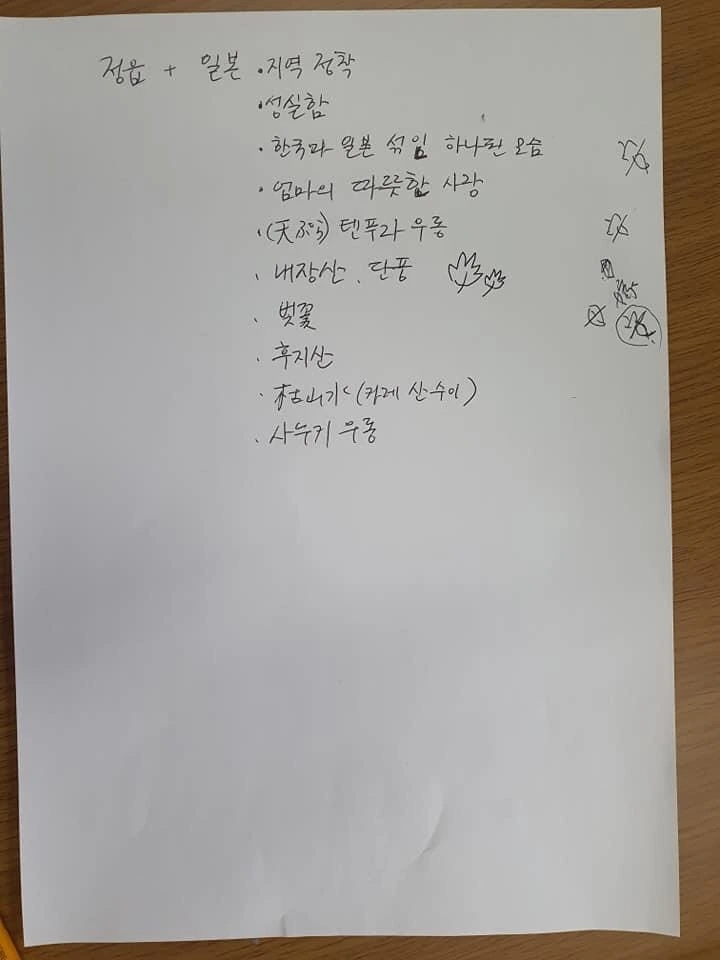 정읍 + 일본 · 지역 정착
· 성실함
· 한국과 일본 섞임 하나된 모습
· 엄마의 따릇함 사랑
· (天ぷら) 텐푸라 우롱
· 내장산 · 단풍
· 벚꽃
· 후지산
· 枯山水 (카레 산수이)
· 사누키 우롱